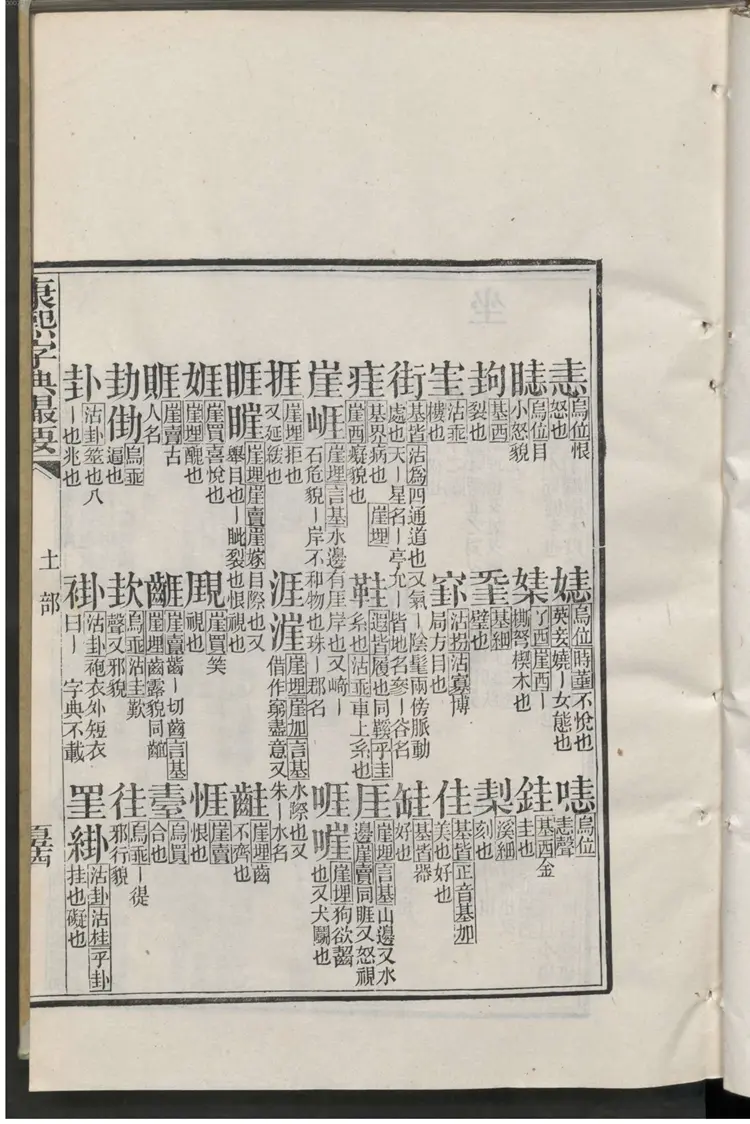 恚烏位恨怒也
嫕烏位時華不悅也英妾嬈丨女態也
嚖烏位恚聲
烏位目小怒貌
基西金圭也
基西裂也
基細甓也
溪細刻也
沽乖㯕也
沽拐沽寡博局方目也
佳基皆正音基加美也好也
街基皆沽爲四通道也又氣丨陰髦兩傍脈動處也天丨星名丨亭允丨皆地名參丨谷名
基皆器好也
痽基界病也崖埋崖西癡貌也
鞋遐皆履也同鞵乎圭系也沽乖車上系也
厓崖埋言基山邊又水邊崖賣同睚又怒視
崖崕崖埋言基水邊有厓岸也又崎丨石危貌丨岸不和物也珠丨郡名
啀嘊崖埋狗欲齧也又犬鬭也
捱崖埋拒也又延緩也
涯漄崖埋崖加言基水際也又借作窮盡意又朱丨水名
睚崖埋崖賣崖嫁目際也又舉目也丨眦裂也恨視也
娾崖買喜悅也崖埋醜也
崖買笑視也
崖埋齒不齊也
崖賣古人名
崖賣齒丨切齒言基崖埋齒露貌同齜
崖賣恨也
烏買合也
烏乖逼也
烏乖沽圭歎聲又邪貌
烏乖丨徥邪行貌
卦沽卦筮也八丨也兆也
褂沽卦袍衣外短衣曰丨字典不載
罣掛沽卦沽桂乎卦挂也礙也
康熙字典撮要
土部